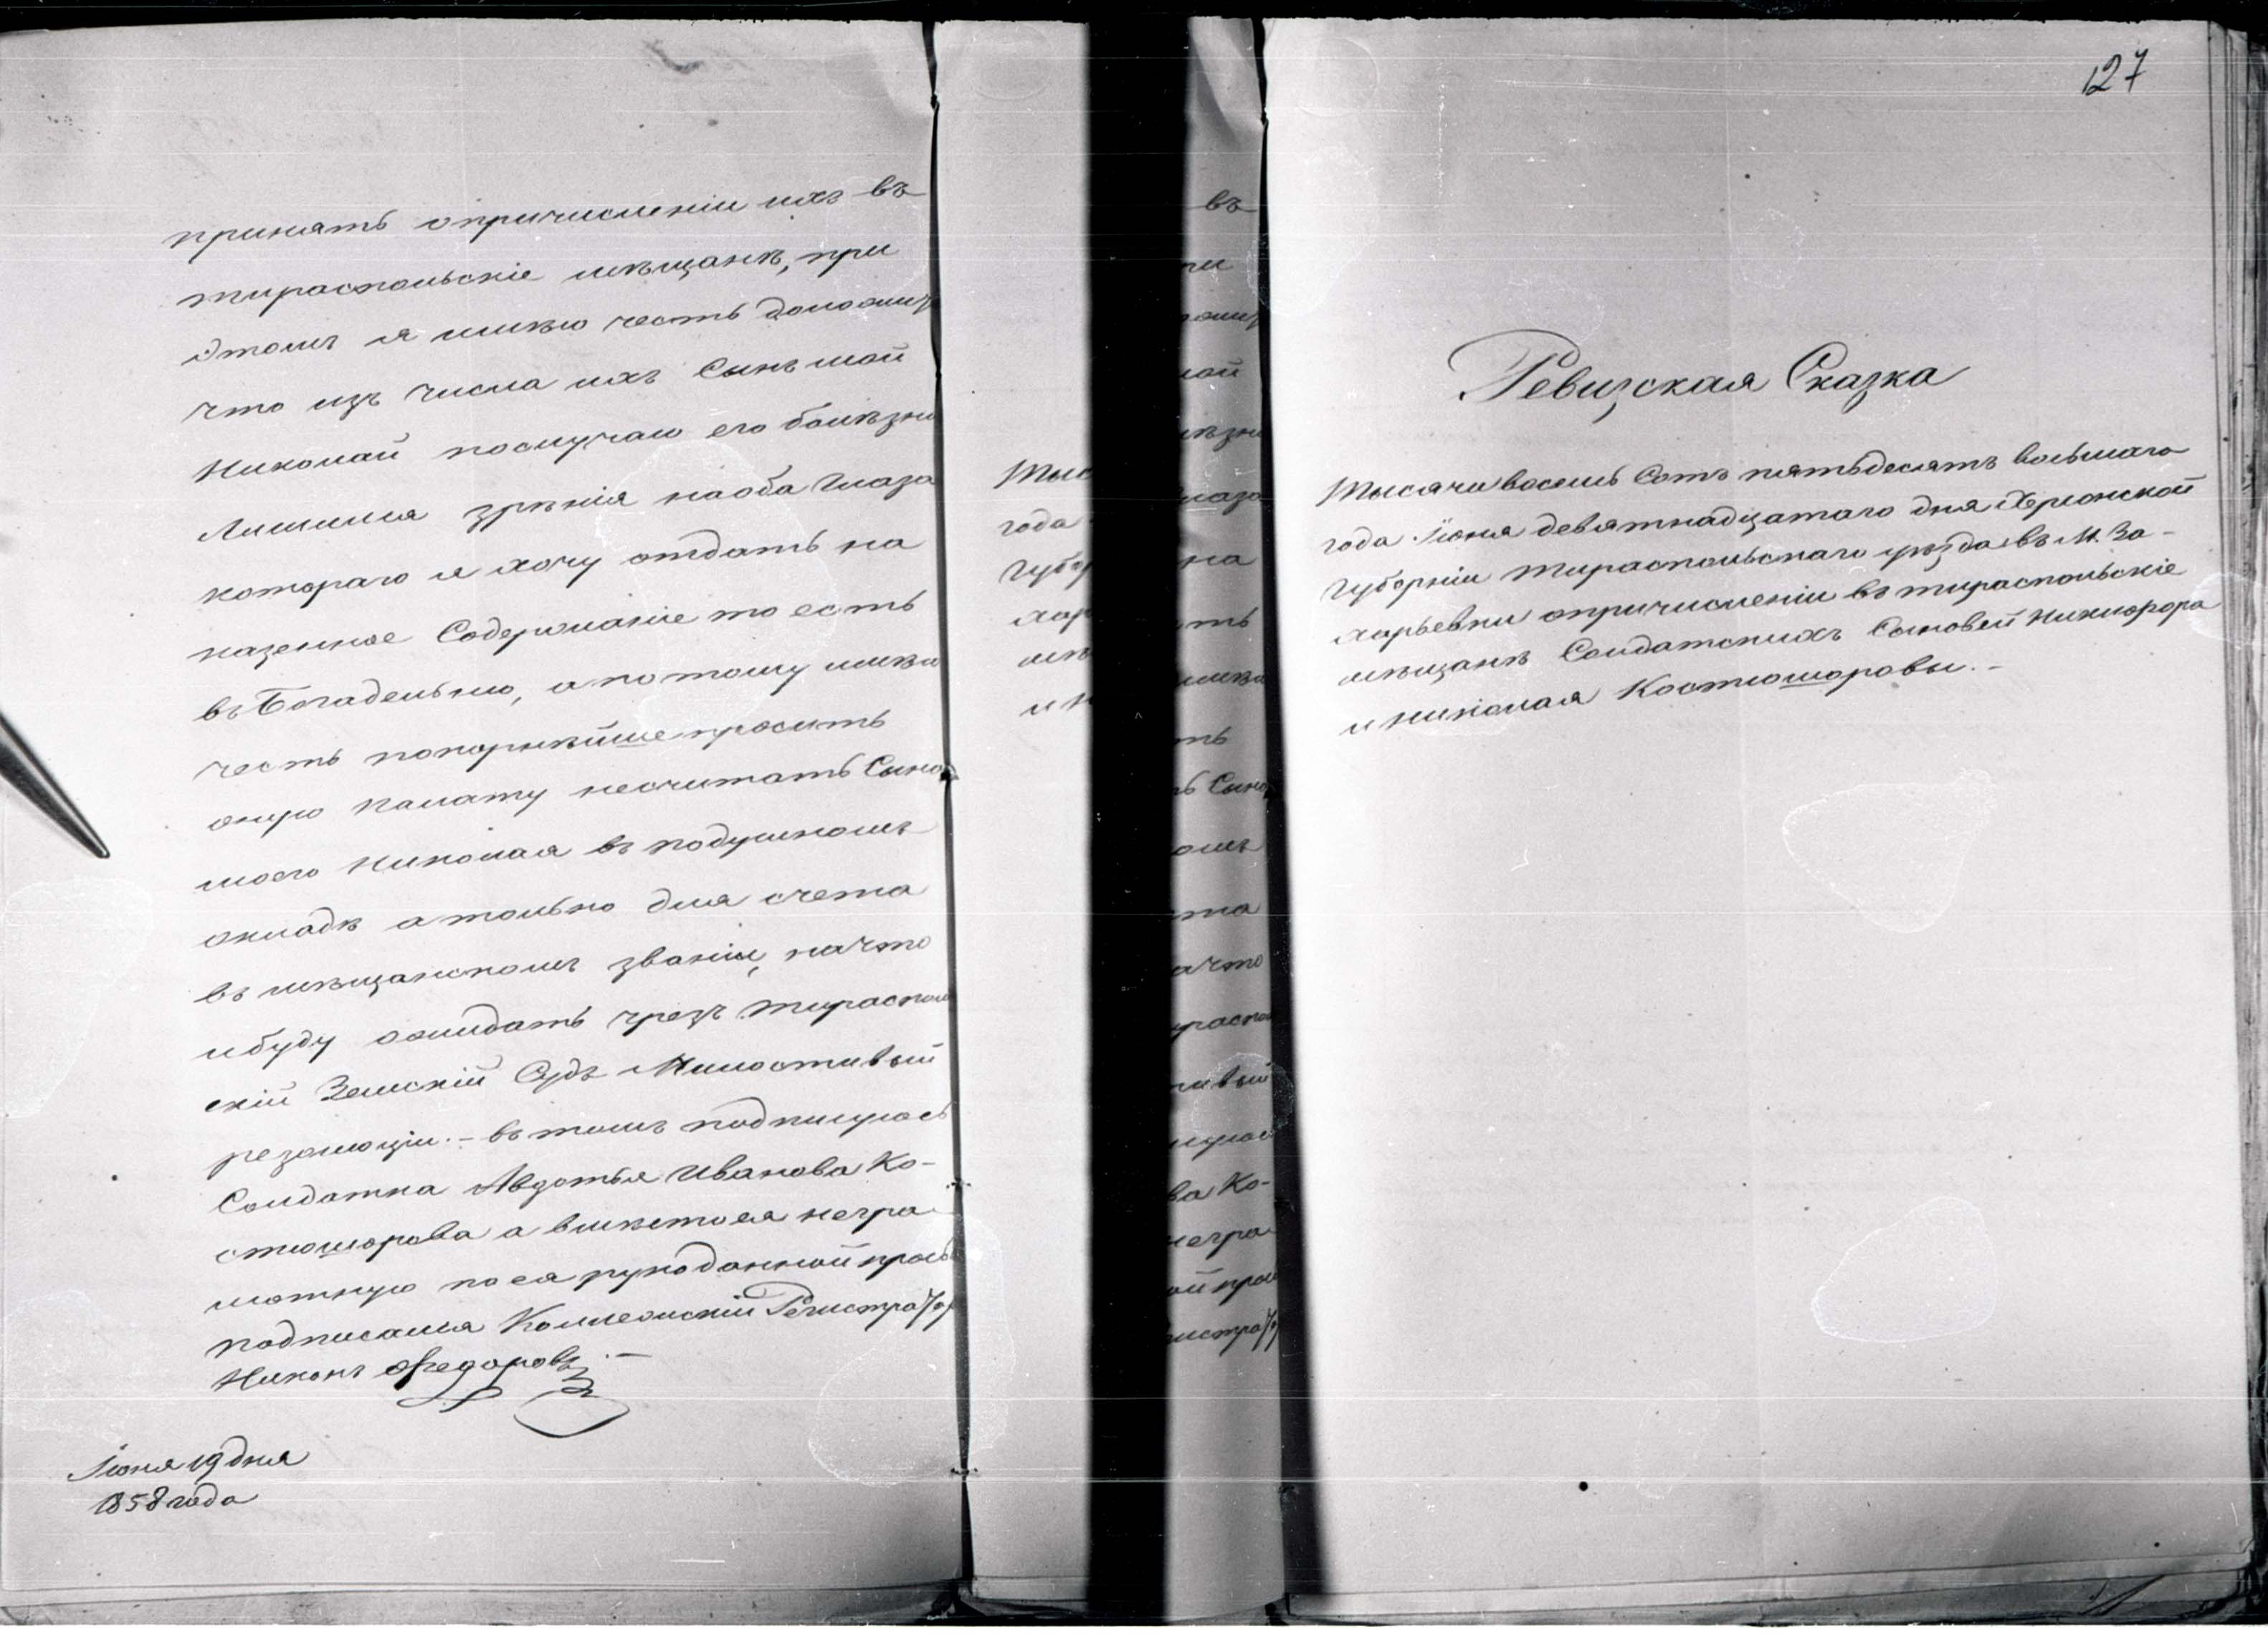 принять опричисленіи ихъ въ
тираспольскіе мѣщанѣ, при
этомъ я имѣю честь доложить
что изъ числа ихъ Сынъ мой
Николай послучаю его болѣзни
Лишился зрѣнія наоба Глаза
котораго я хочу отдать на
казенное Содержаніе то есть
въ Богадельню, а по тому имѣю
честь покорнѣйше просить
оную палату несчитать Сына
моего Николая въ подушномъ
окладѣ а только для счета
въ мѣщанскомъ званіи, начто
и буду ожидать чрезъ тирасполь
скій Земскій Судъ Милостивый
резолюціи. – въ томъ подпишусь
Солдатка Авдотья Иванова Ко-
стюшорова а вмѣсто ея негра-
мотную по ея рукоданной прозь
подписался Коллежскій Регистраторъ
Никонъ Федоровъ. –
Іюня 19 дня
1858 года
127
Ревизская Сказка
Тысячи восемь Сотъ пятьдесятъ восьмаго
года Іюня девятнадцатаго дня Херсонской
Губерніи тираспольскаго уѣзда въ М. За-
харьевки опричисленіи въ тираспольскіе
мѣщанѣ Солдатскихъ Сыновей Никифора
и Николая Костюшоровы. –